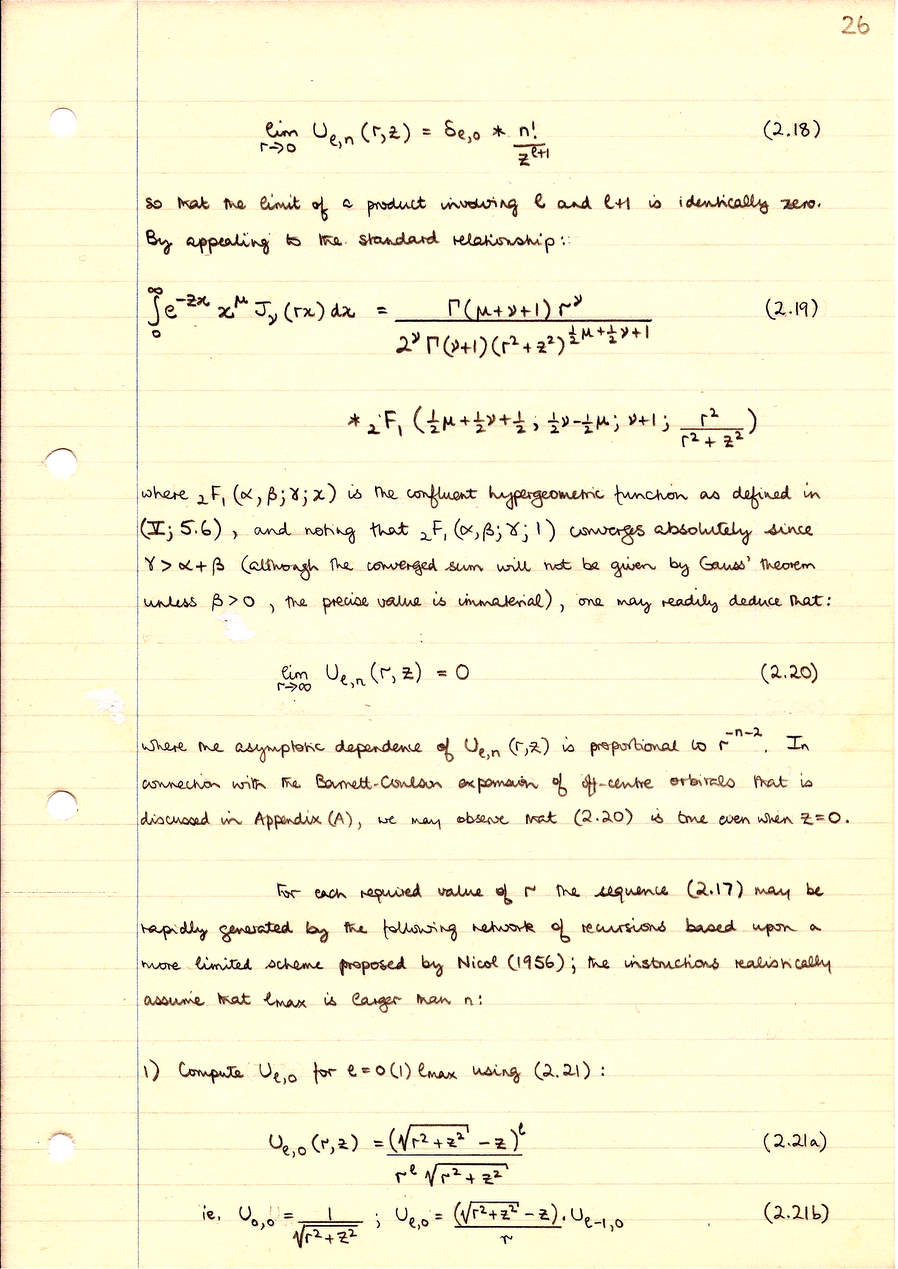 26
lim r→0 U_{ℓ,n} (r,z) = δ_{ℓ,0} * n! / z^{ℓ+1} (2.18)
so that the limit of a product involving ℓ and ℓ+1 is identically zero.
By appealing to the standard relationship:
∫_0^∞ e^{-zx} x^μ J_ν (rx) dx = Γ(μ+ν+1) r^ν / 2^ν Γ(ν+1) (r²+z²)^{½μ+½ν+1} (2.19)
* ₂F₁ (½μ+½ν+½ ; ½ν-½μ ; ν+1 ; r² / r²+z²)
where ₂F₁ (α, β; γ; x) is the confluent hypergeometric function as defined in
(V; 5.6), and noting that ₂F₁ (α, β; γ; 1) converges absolutely since
γ > α+β (although the converged sum will not be given by Gauss' theorem
unless β>0 , the precise value is immaterial), one may readily deduce that:
lim r→∞ U_{ℓ,n} (r, z) = 0 (2.20)
where the asymptotic dependence of U_{ℓ,n} (r,z) is proportional to r^{-n-2}. In
connection with the Barnett-Coulson expansion of off-centre orbitals that is
discussed in Appendix (A), we may observe that (2.20) is true even when z=0.
For each required value of r the sequence (2.17) may be
rapidly generated by the following network of recursions based upon a
more limited scheme proposed by Nicol (1956); the instructions realistically
assume that ℓmax is larger than n:
1) Compute U_{ℓ,0} for ℓ = 0(1) ℓmax using (2.21) :
U_{ℓ,0} (r,z) = (√(r²+z²) - z)^ℓ / r^ℓ √(r²+z²) (2.21a)
ie. U_{0,0} = 1 / √(r²+z²) ; U_{ℓ,0} = (√(r²+z²) - z) / r . U_{ℓ-1,0} (2.21b)